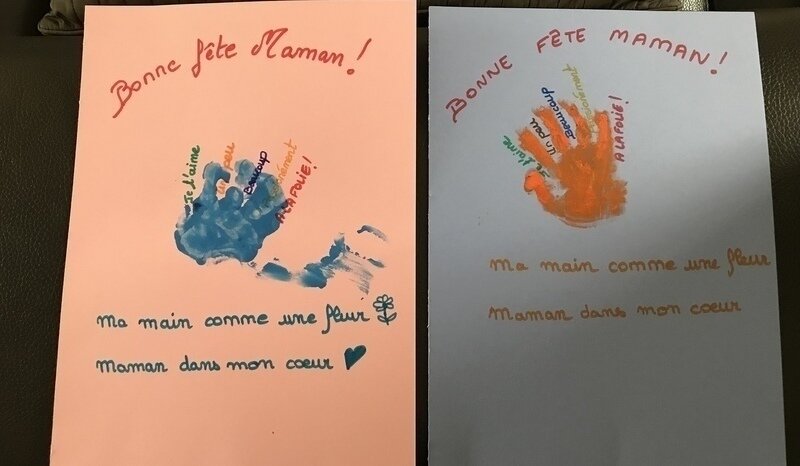 Bonne fête Maman!
Je t'aime
un peu
Beaucoup
passionément
A LA FOLIE!
Ma main comme une fleur
Maman dans mon coeur
BONNE FÊTE MAMAN!
Je t'aime
un peu
Beaucoup
passionément
A LA FOLIE!
Ma main comme une fleur
Maman dans mon coeur